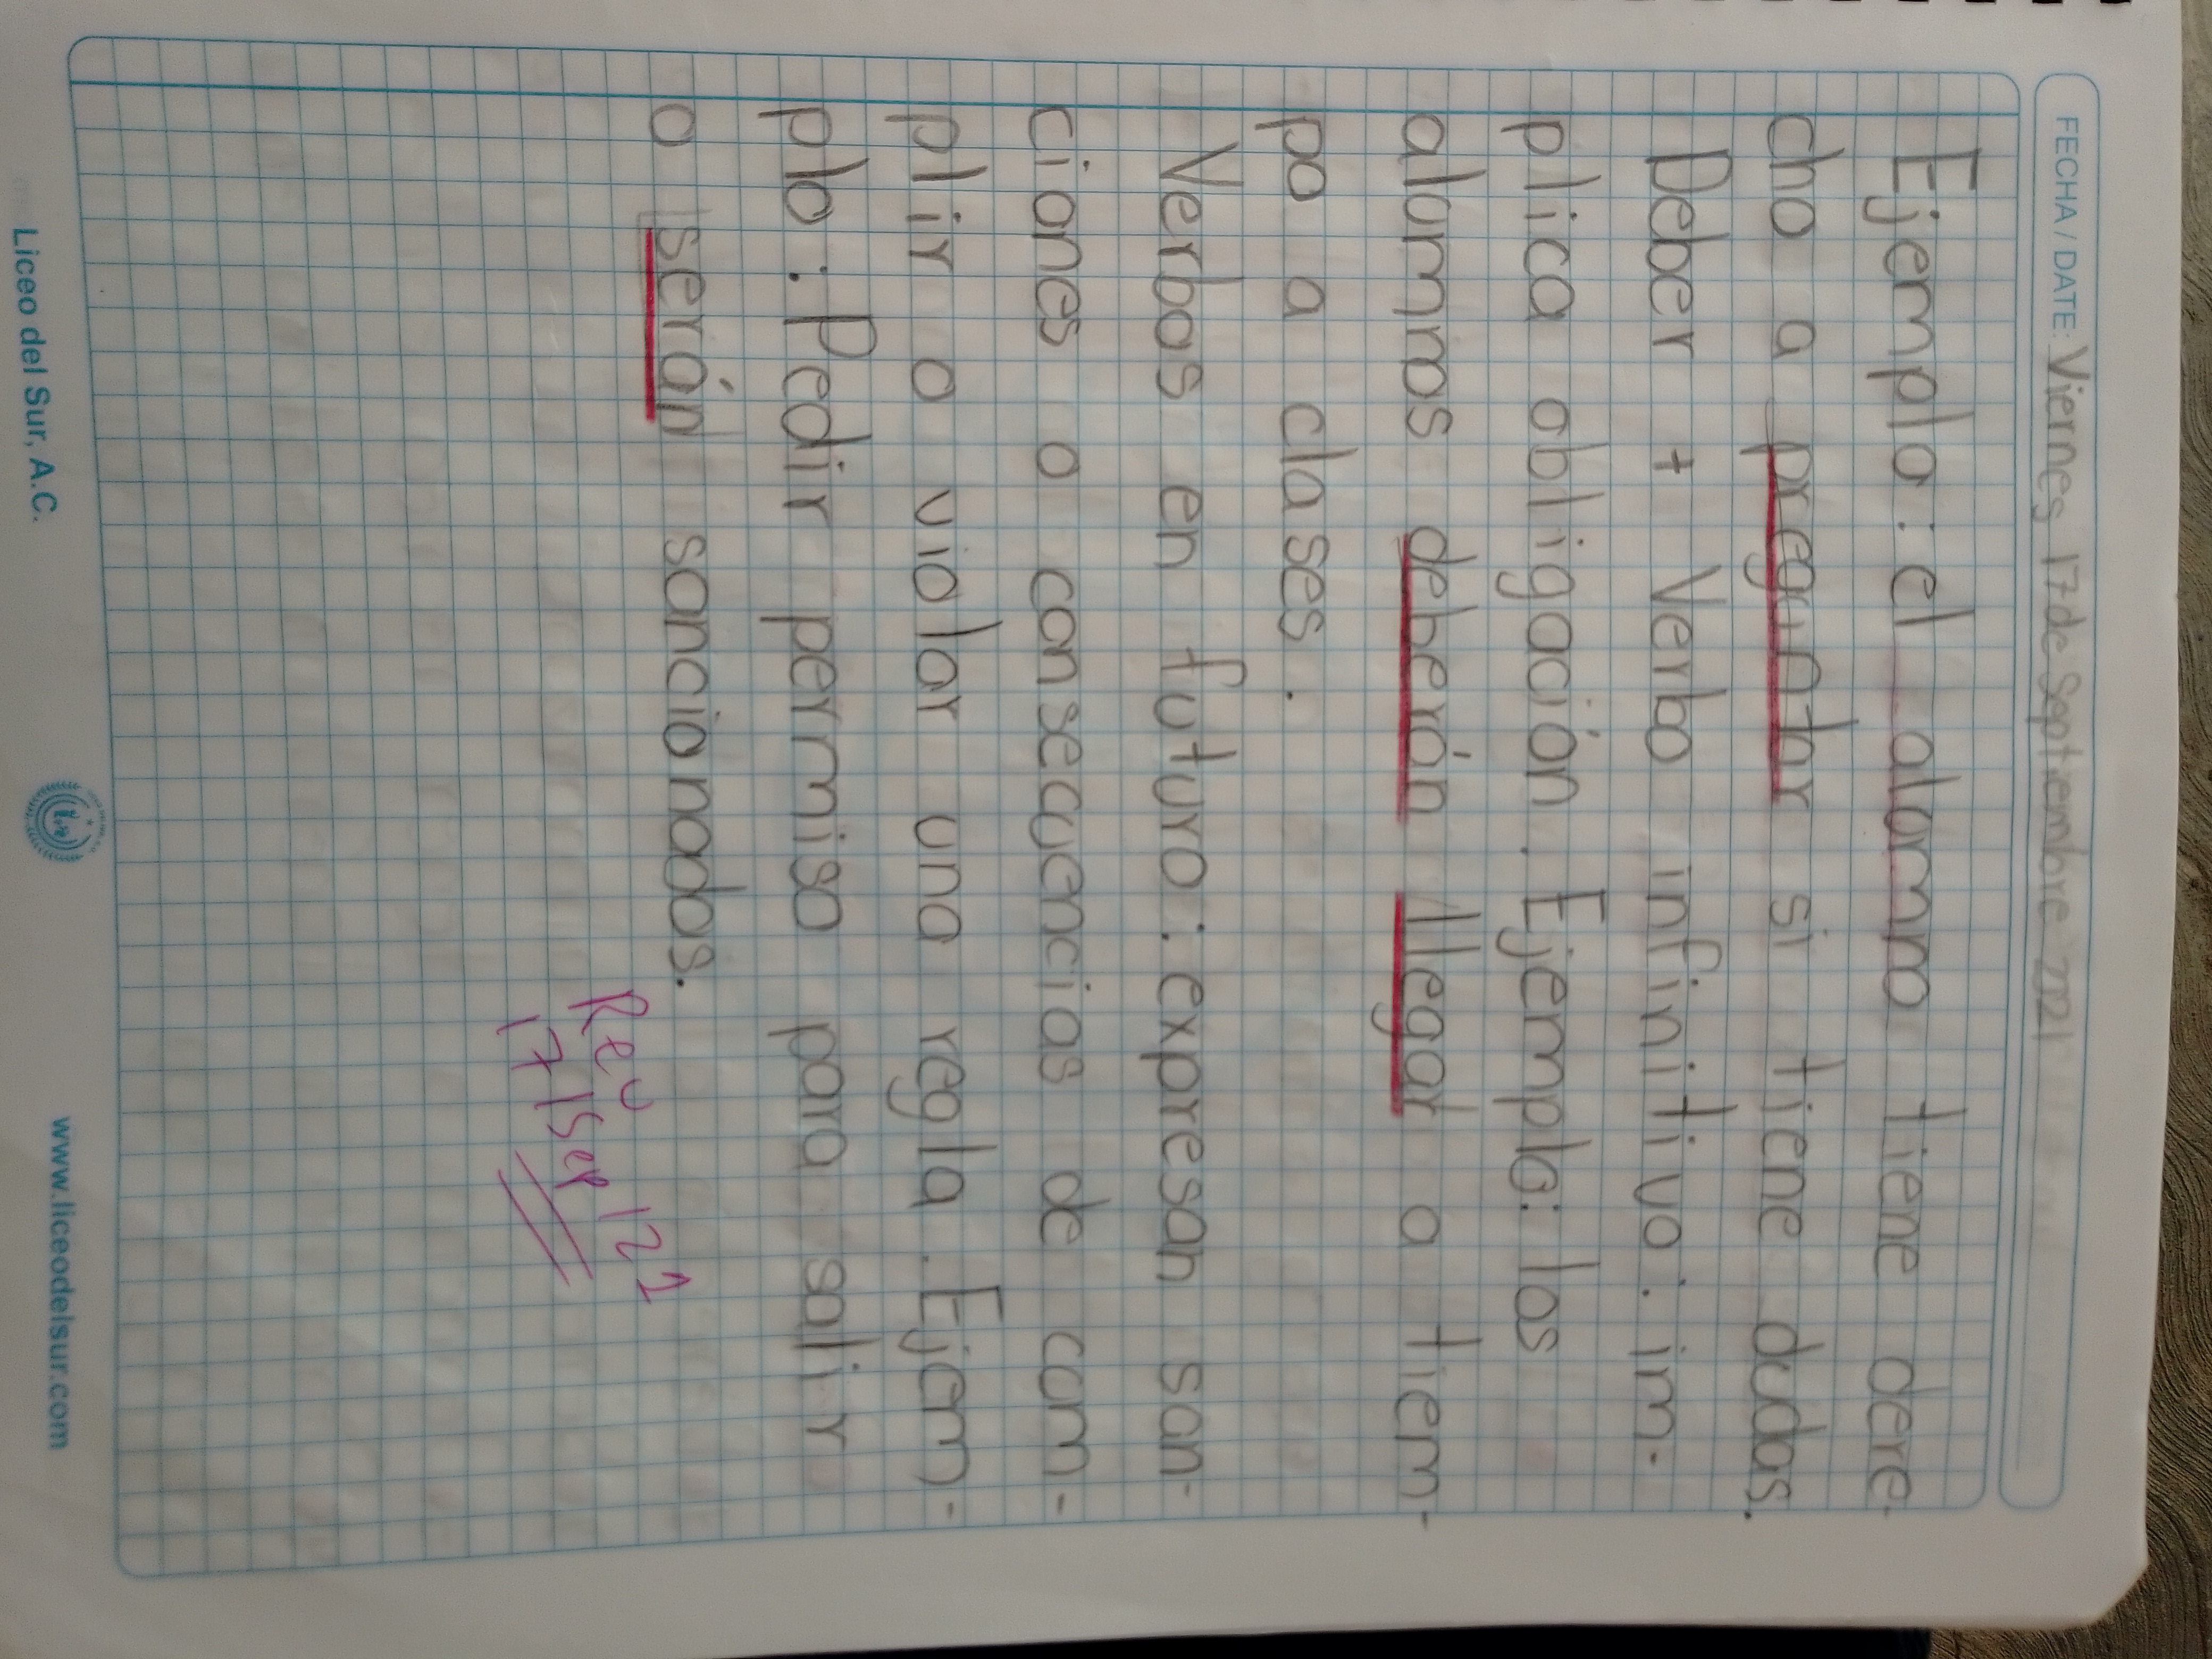 FECHA / DATE: Viernes 17 de Septiembre 2021
Ejemplo: el alumno tiene dere-
cho a preguntar si tiene dudas.
Deber + Verbo infinitivo: im-
plica obligación. Ejemplo: los
alumnos deberán llegar a tiem-
po a clases.
Verbos en futuro: expresan san-
ciones o consecuencias de cum-
plir o violar una regla. Ejem-
plo: Pedir permiso para salir
o serán sancionados.
Rev
17/Sep/21
Liceo del Sur, A.C.
www.liceodelsur.com